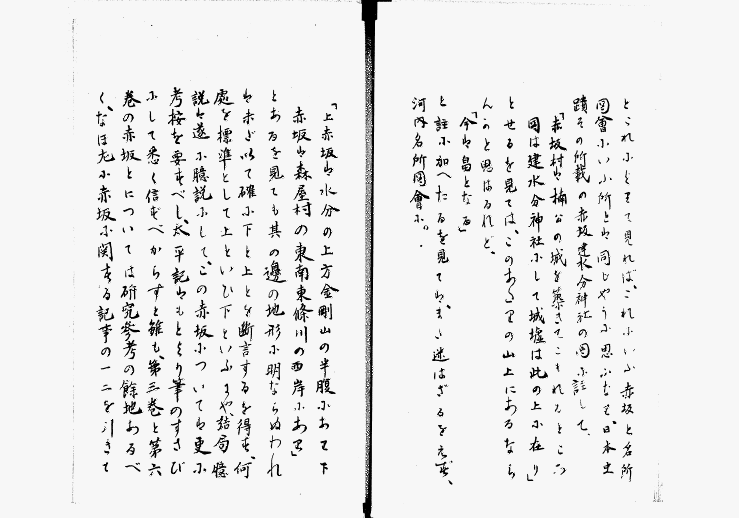 とこれによりて見れば、これにいふ赤坂と名所
図會にいふ所とは同じやうに思ふなり、日本史
蹟その所載の赤坂建水分神社の図に註して、
「赤坂村は楠公の城を築きてこもれるところ
図は建水分神社にして城墟は此の上に在り」
とせるを見ては、このあたりの山上にあるなら
んかと思はるれど、
「今は畠となる」
と註に加へたるを見ては、また迷はざるを えず、
河内名所図會に。
「上赤坂は水分の上方金剛山の半腹にありて下
赤坂は森屋村の東南東條川の西岸にあり」
とあるを見ても其の邊の地形に明ならぬわれ
は未だ以て確に下と上とを断言するを得ず、何
處を標準として上といひ下といふまや、結局憶
説は遂に臆説にして、この赤坂については更に
考按を要すべし、太平記はもとより筆のすさび
にして悉く信ずべからずと雖も、第三巻と第六
巻の赤坂とについては研究参考の餘地あるべ
く、なほ左に赤坂に関する記事の一二を引きて